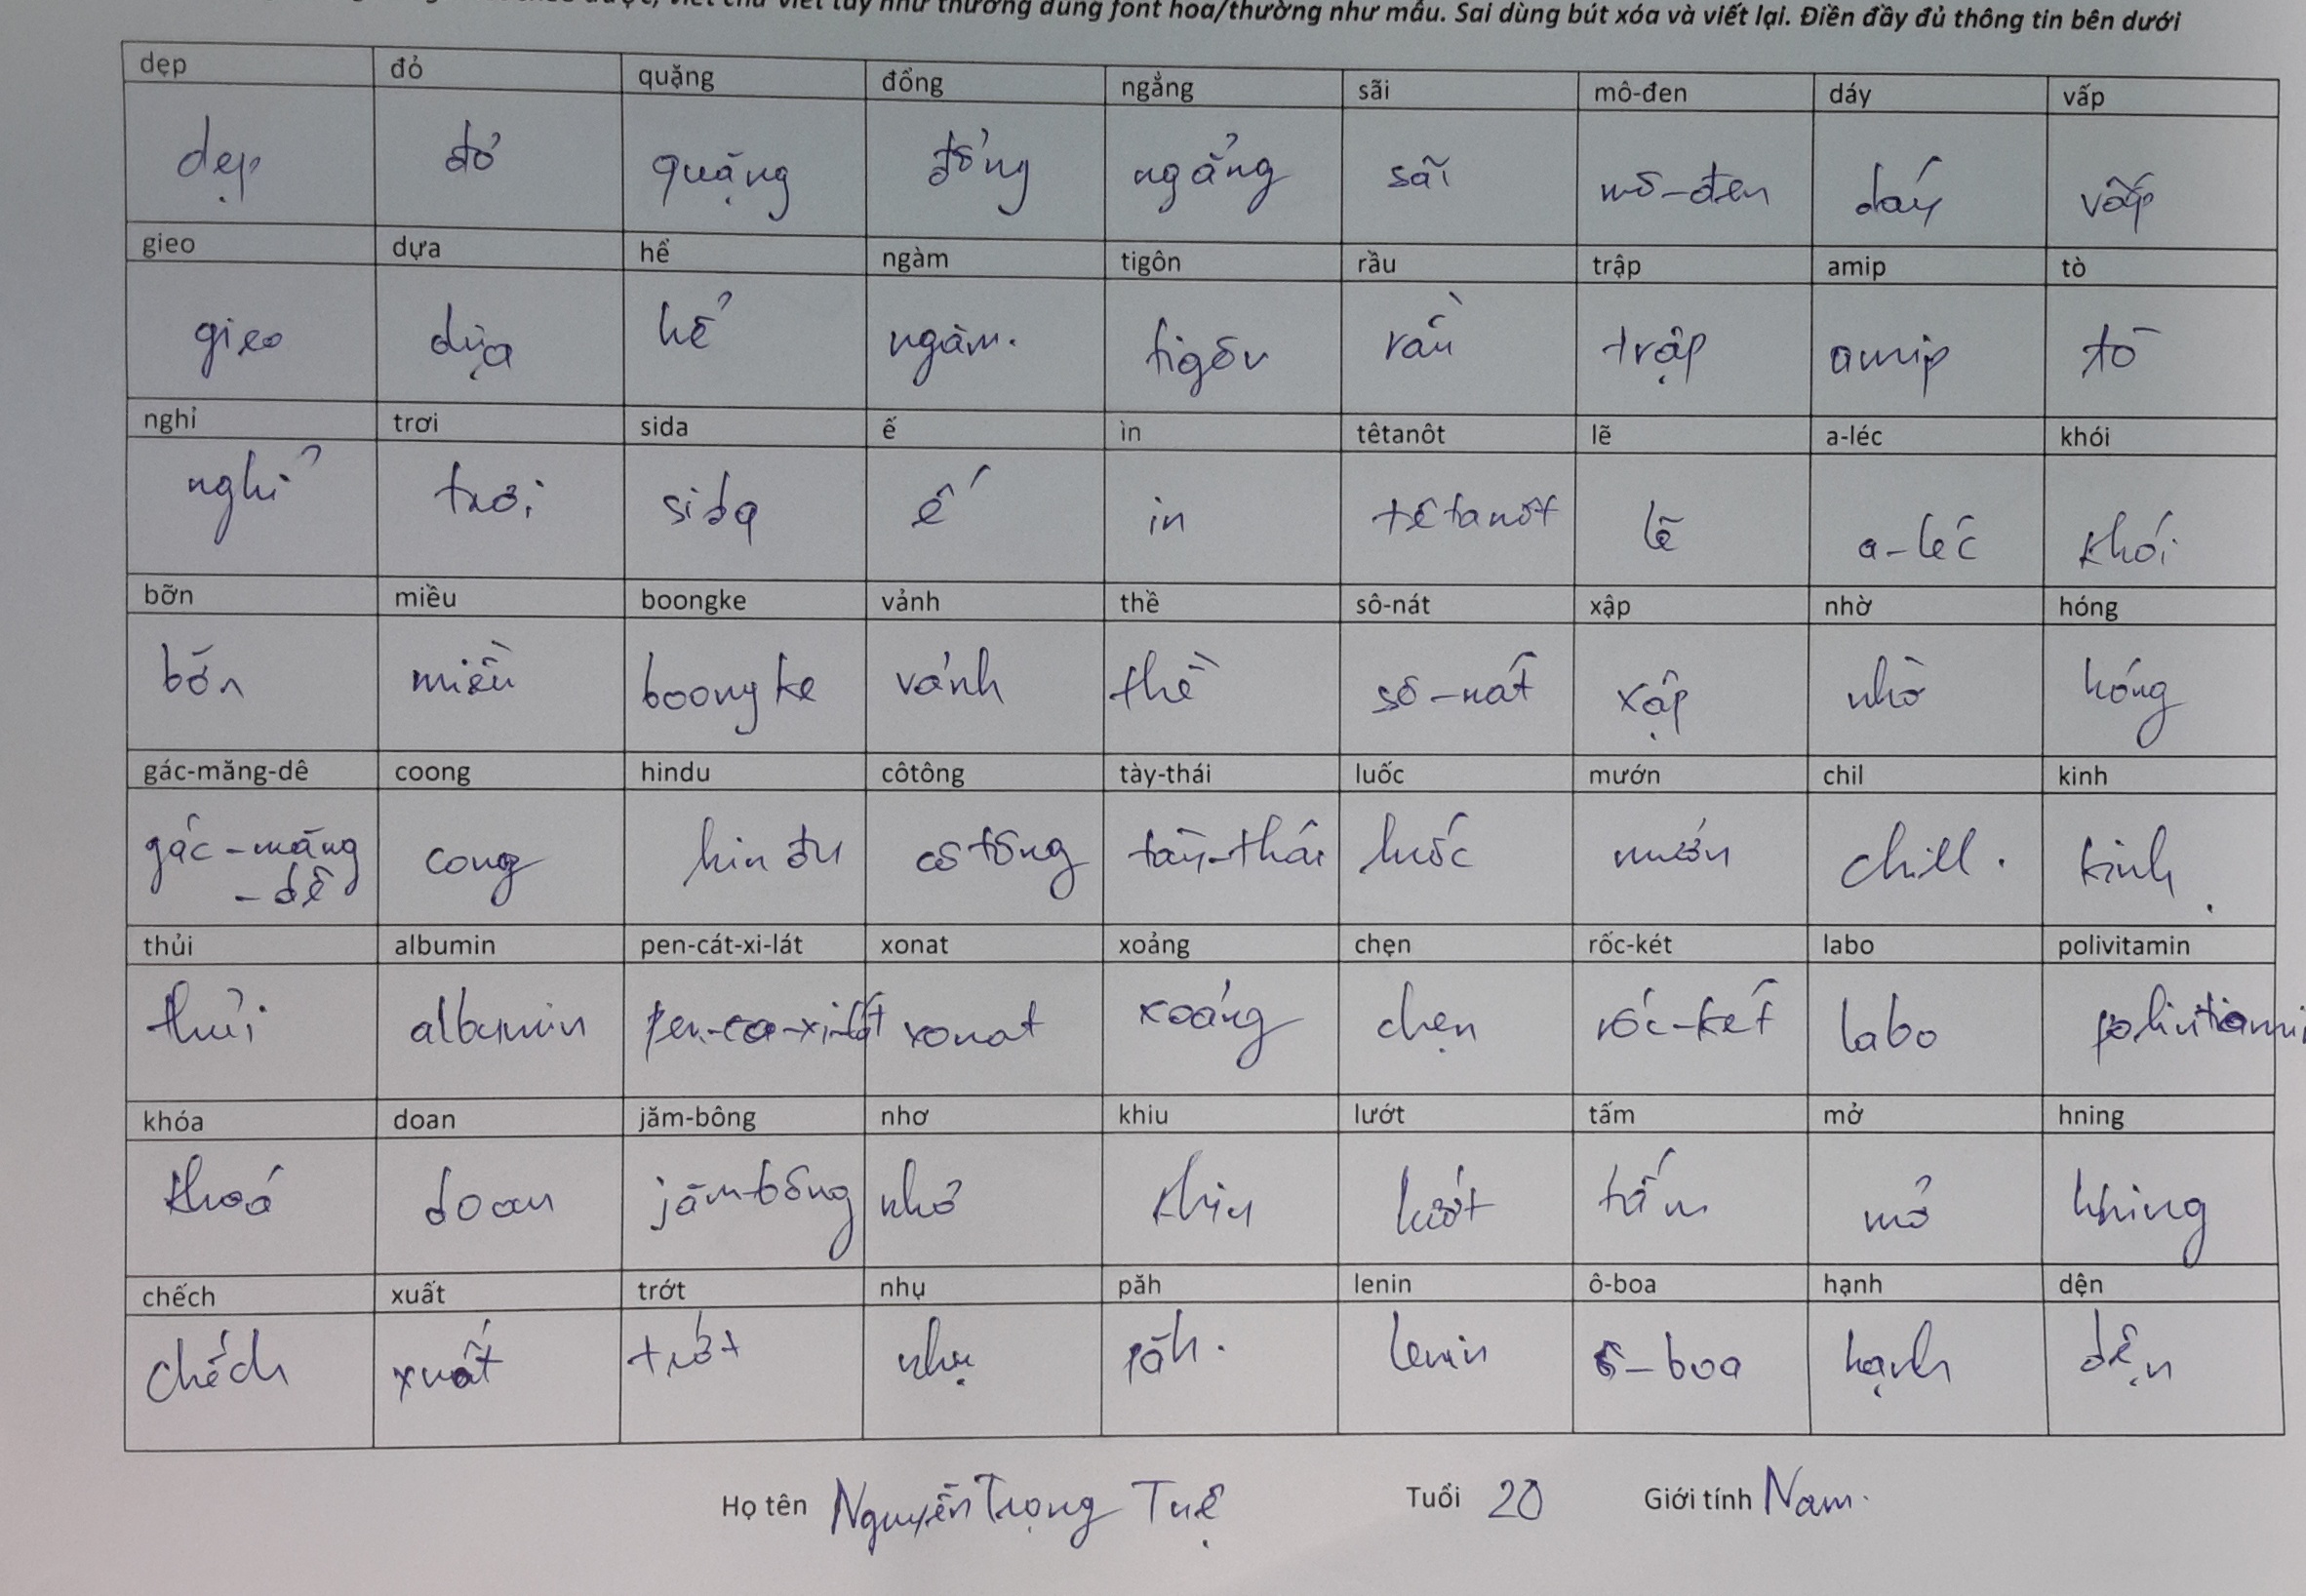 viết chữ viết tay như thường dùng font hoa/thường như mẫu. Sai dùng bút xóa và viết lại. Điền đầy đủ thông tin bên dưới
dẹp đỏ quặng đổng ngẳng sãi mô-đen dáy vấp
dẹp đỏ quặng đổng ngẳng sãi mô-đen dáy vấp
gieo dựa hể ngàm tigôn rầu trập amip tò
gieo dựa hể ngàm. tigôn rầu trập amip tò
nghỉ trơi sida ế ìn têtanôt lẽ a-léc khói
nghỉ trơi sida ế in têtanôt lẽ a-léc khói
bỡn miều boongke vảnh thề sô-nát xập nhờ hóng
bỡn miều boongke vảnh thề sô-nát xập nhờ hóng
gác-măng-dê coong hindu côtông tày-thái luốc mướn chil kinh
gác-măng cong hinđu côtông tày-thái luốc mướn chill. kinh.
-dê
thủi albumin pen-cát-xi-lát xonat xoảng chẹn rốc-két labo polivitamin
thủi albumin pen-ca-xi-lát xonat xoảng chẹn rốc-két labo
khóa doan jăm-bông nhơ khiu lướt tấm mở hning
khoá doan jăm-bông nhơ khiu lướt tấm mở hning
chếch xuất trớt nhụ păh lenin ô-boa hạnh dện
chếch xuất trớt nhụ păh. lenin ô-boa hạnh dện
Họ tên Nguyễn Trọng Tuệ Tuổi 20 Giới tính Nam.